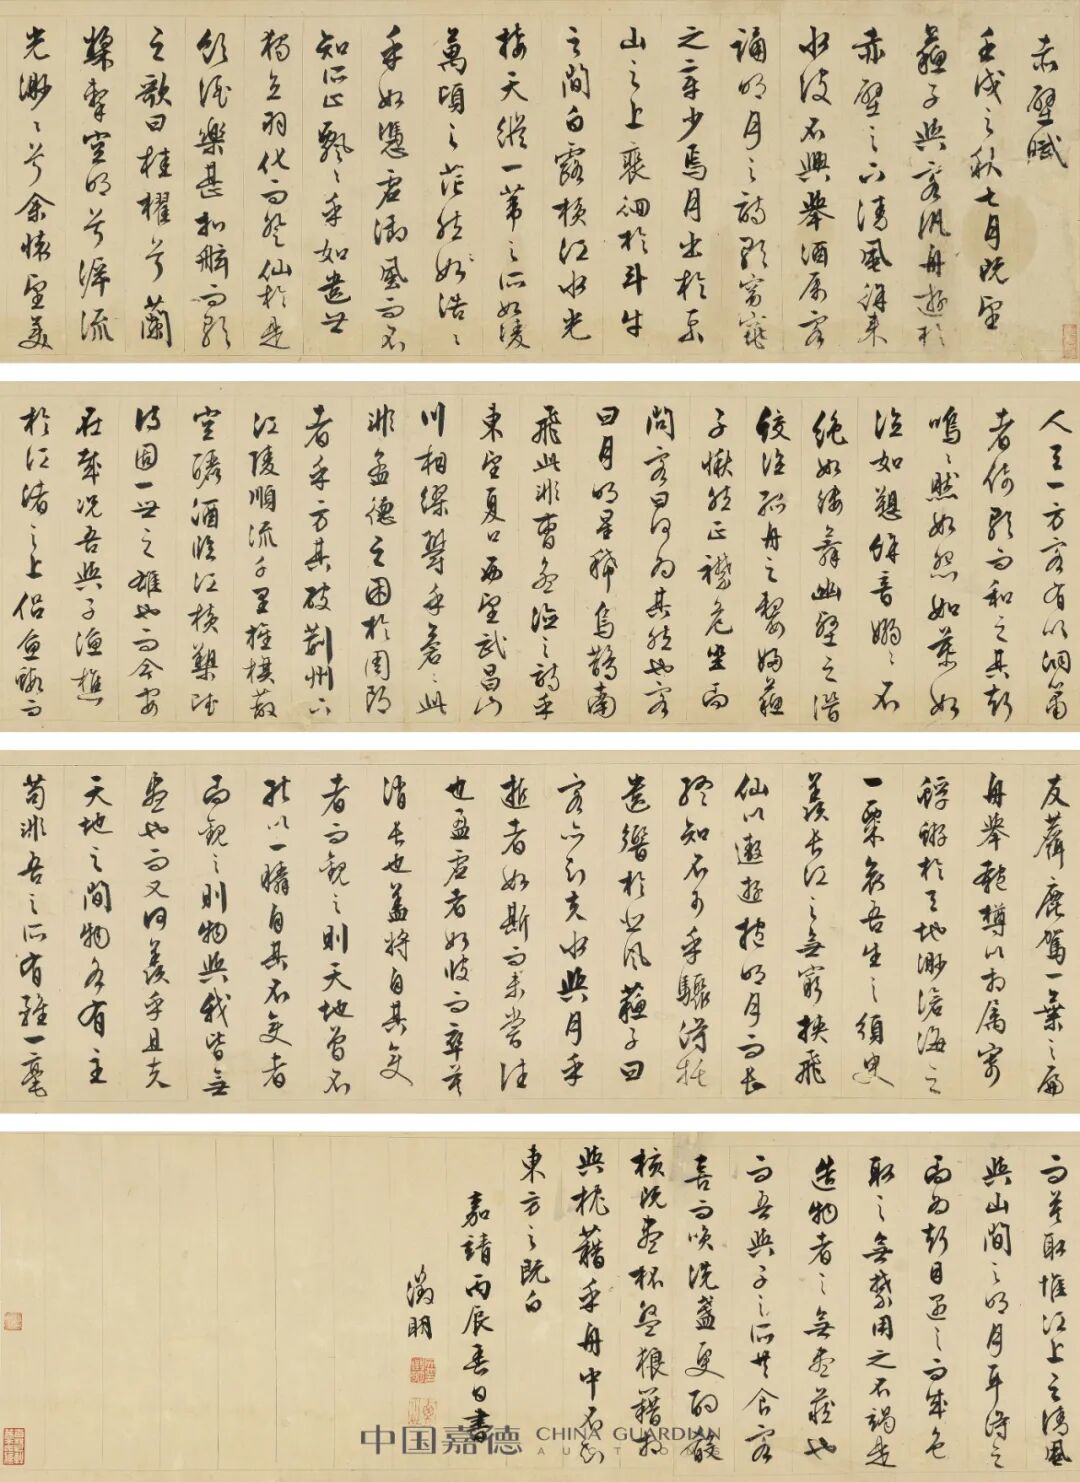 赤壁賦
壬戌之秋七月既望
蘇子與客汎舟遊於
赤壁之下清風徐來
水波不興舉酒屬客
誦明月之詩歌窈窕
之章少焉月出於東
山之上裴徊於斗牛
之間白露橫江水光
接天縱一葦之所如凌
萬頃之茫然如浩〻
乎如憑虛御風而不
知所止飄〻乎如遺世
獨立羽化而登仙於是
飲酒樂甚扣舷而歌
之歌曰桂櫂兮蘭
槳擊空明兮泝流
光渺〻兮余懷望美
人天一方客有吹洞簫
者倚歌而和之其聲
嗚〻然如怨如慕如
泣如愬餘音嫋〻不
絕如縷舞幽壑之潛
蛟泣孤舟之嫠婦蘇
子愀然正襟危坐而
問客曰何為其然也客
曰月明星稀烏鵲南
飛此非曹孟德之詩乎
東望夏口西望武昌山
川相繆鬱乎蒼〻此
非孟德之困於周郎
者乎方其破荊州下
江陵順流千里旌旗蔽
空釃酒臨江橫槊賦
詩固一世之雄也而今安
在哉況吾與子漁樵
於江渚之上侶魚蝦而
友麋鹿駕一葉之扁
舟舉匏樽以相屬寄
蜉蝣於天地渺滄海之
一粟哀吾生之須臾
羨長江之無窮挾飛
仙以遨遊抱明月而長
終知不可乎驟得托
遺響於悲風蘇子曰
客亦知夫水與月乎
逝者如斯而未嘗往
也盈虛者如彼而卒莫
消長也蓋將自其變
者而觀之則天地曾不
能以一瞬自其不變者
而觀之則物與我皆無
盡也而又何羨乎且夫
天地之間物各有主
苟非吾之所有雖一毫
而莫取惟江上之清風
與山間之明月耳得之
而為聲目遇之而成色
取之無禁用之不竭是
造物者之無盡藏也
而吾與子之所共食客
喜而笑洗盞更酌殽
核既盡杯盤狼籍相
與枕藉乎舟中不知
東方之既白
嘉靖丙辰春日書
徵明
中国嘉德 CHINA GUARDIAN
AUCTIONS